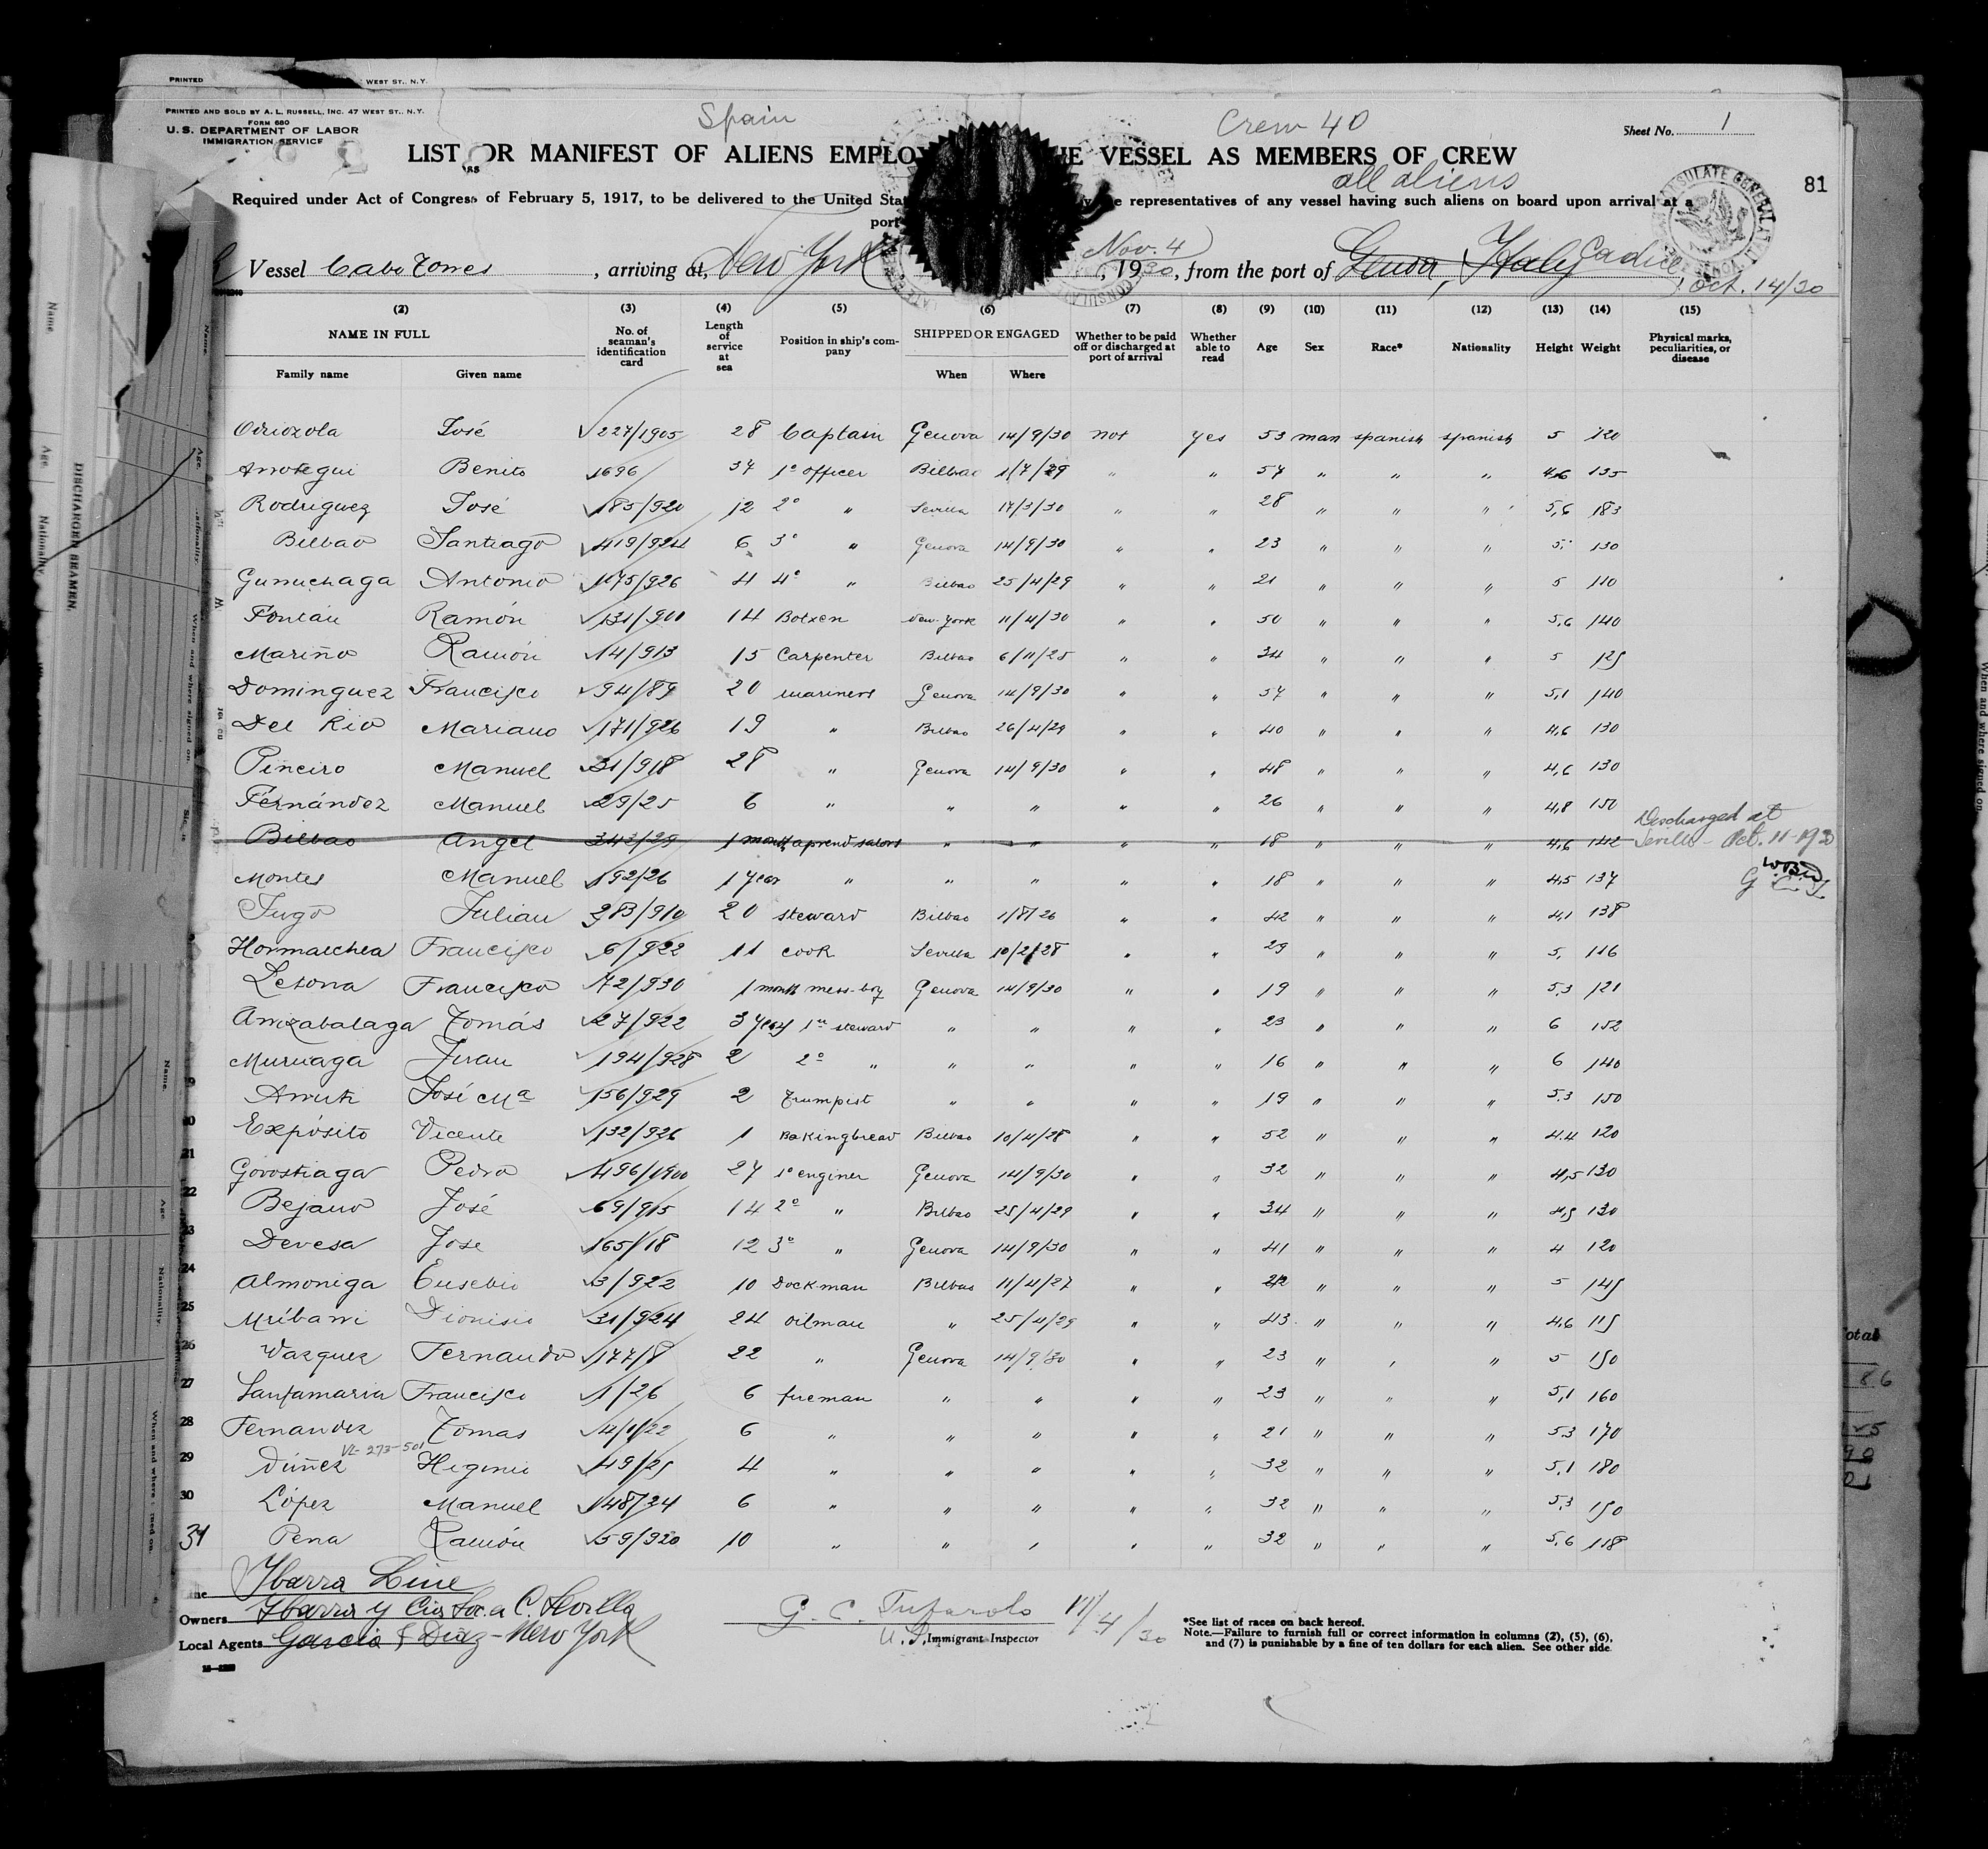 PRINTED WEST ST., N.Y.
PRINTED AND SOLD BY A. L. RUSSELL, INC. 47 WEST ST., N.Y.
FORM 680
U. S. DEPARTMENT OF LABOR
IMMIGRATION SERVICE
Spain
Crew 40
Sheet No. 1
LIST OR MANIFEST OF ALIENS EMPLO VESSEL AS MEMBERS OF CREW
all aliens
81
Required under Act of Congress of February 5, 1917, to be delivered to the United Sta representatives of any vessel having such aliens on board upon arrival at a
port
Vessel Cabo Torres, arriving at, New York Nov. 4, 1930, from the port of Genova, Italy Cadiz Oct. 14/30
(2) (3) (4) (5) (6) (7) (8) (9) (10) (11) (12) (13) (14) (15)
NAME IN FULL No. of seaman's identification card Length of service at sea Position in ship's company SHIPPED OR ENGAGED Whether to be paid off or discharged at port of arrival Whether able to read Age Sex Race* Nationality Height Weight Physical marks, peculiarities, or disease
Family name Given name When Where
Odriozola José 227/1905 28 Captain Genova 14/9/30 not yes 53 man spanish spanish 5 120
Arrotegui Benito 1696 37 1º officer Bilbao 1/7/29 " " 57 " " " 4,6 135
Rodriguez José 185/920 12 2º " Sevilla 17/3/30 " " 28 " " " 5,6 183
Bilbao Santiago 419/924 6 3º " Genova 14/9/30 " " 23 " " " 5, 130
Gunuchaga Antonio 175/926 4 4º " Bilbao 25/4/29 " " 21 " " " 5 110
Fontán Ramón 131/900 14 Botxen New-York 11/4/30 " " 50 " " " 5,6 140
Mariño Ramón 14/913 15 Carpenter Bilbao 6/11/25 " " 34 " " " 5 125
Dominguez Francisco 94/89 20 mariners Genova 14/9/30 " " 57 " " " 5,1 140
Del Rio Mariano 171/926 19 " Bilbao 26/4/29 " " 40 " " " 4,6 130
Pineiro Manuel 31/918 28 " Genova 14/9/30 " " 48 " " " 4,6 130
Fernández Manuel 29/25 6 " " " " " 26 " " " 4,8 150
Bilbao Angel 343/29 1 month aprend sailors " " " " 18 " " " 4,6 142 Discharged at Sevilla - Oct. 11-1930
Montes Manuel 192/26 1 year " " " " " 18 " " " 4,5 137
Tugo Julian 283/910 20 steward Bilbao 1/8/26 " " 42 " " " 4,1 138
Hormaechea Francisco 6/922 11 cook Sevilla 10/2/28 " " 29 " " " 5, 116
Letona Francisco 72/930 1 month mess-boy Genova 14/9/30 " " 19 " " " 5,3 121
Amezabalaga Tomás 27/922 3 years 1er steward " " " " 23 " " " 6 152
Muruaga Juan 194/928 2 2º " " " " " 16 " " " 6 140
José Mª 156/929 2 Trumpist " " " " 19 " " " 5,3 150
20 Expósito Vicente 132/926 1 Bakingbread Bilbao 10/4/28 " " 52 " " " 4.4 120
21 Gorostiaga Pedro 496/1900 27 1º enginer Genova 14/9/30 " " 32 " " " 4,5 130
22 Bejano José 69/915 14 2º " Bilbao 25/4/29 " " 34 " " " 4,5 130
23 Devesa Jose 165/18 12 3º " Genova 14/9/30 " " 41 " " " 4 120
24 Almoniga Eusebio 3/922 10 Dockman Bilbao 11/4/27 " " 22 " " " 5 145
25 Uribarri Dionisio 31/924 24 oilman " 25/4/29 " " 43 " " " 4,6 115
26 Vazquez Fernando 177/8 22 " Genova 14/9/30 " " 23 " " " 5 150
27 Santamaria Francisco 1/26 6 fireman " " " " 23 " " " 5,1 160
28 Fernandez Tomas 4/1/22 6 " " " " " 21 " " " 5,3 170
VL-273-501
29 Núñez Higinio 49/25 4 " " " " " 32 " " " 5,1 180
30 López Manuel 148/24 6 " " " " " 32 " " " 5,3 150
31 Pena Ramón 59/920 10 " " " " " 32 " " " 5,6 118
Line Ybarra Line
Owners Ybarra y Cia Soc. a C. Sevilla
Local Agents Garcia & Diaz - New York
G. C. Tufarolo 11/4/30
U. S. Immigrant Inspector
*See list of races on back hereof.
Note.—Failure to furnish full or correct information in columns (2), (5), (6),
and (7) is punishable by a fine of ten dollars for each alien. See other side.
DISCHARGED SEAMEN.
Name. Age. Nationality
When and where signed on.